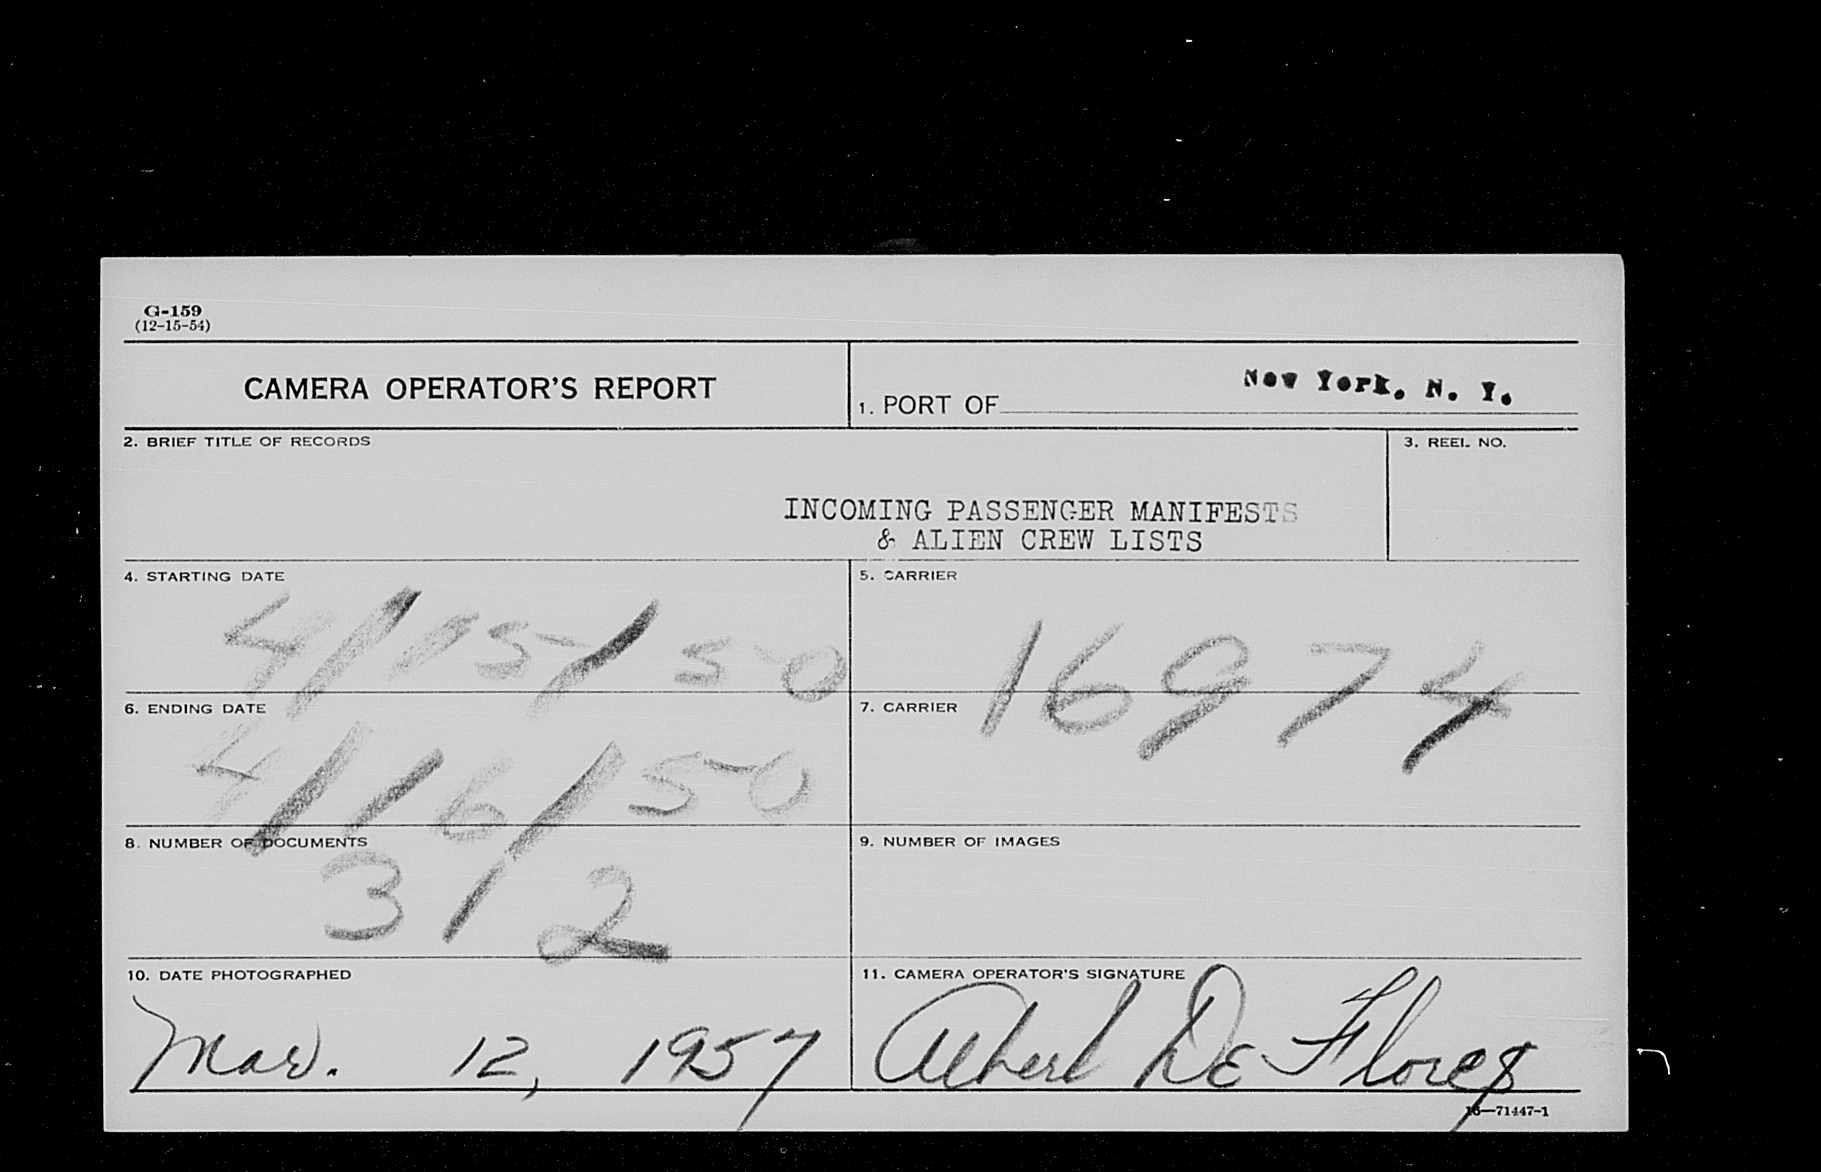 G-159
(12-15-54)
CAMERA OPERATOR'S REPORT
1. PORT OF New York, N. Y.
2. BRIEF TITLE OF RECORDS
3. REEL NO.
INCOMING PASSENGER MANIFESTS
& ALIEN CREW LISTS
4. STARTING DATE
4/15/50
5. CARRIER
16974
6. ENDING DATE
4/16/50
7. CARRIER
8. NUMBER OF DOCUMENTS
3/2
9. NUMBER OF IMAGES
10. DATE PHOTOGRAPHED
Mar. 12, 1957
11. CAMERA OPERATOR'S SIGNATURE
Albert De Flores
16—71447-1